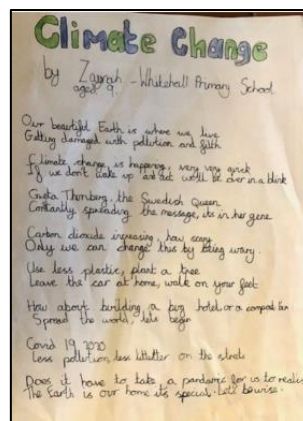 Climate Change
by Zaynah - Whitehall Primary School
aged 9.
Our beautiful Earth is where we live
Getting damaged with pollution and filth
Climate change, is happening, very very quick
If we don't wake up and act we'll be over in a blink
Greta Thunberg, the Swedish Queen
Constantly spreading the message, its in her gene
Carbon dioxide increasing, how scary
Only we can change this by being wary.
Use less plastic, plant a tree
Leave the car at home, walk on your feet
How about building a bug hotel or a compost bin
Spread the world, lets begin
Covid 19 2020
Less pollution, less litter on the street
Does it have to take a pandemic for us to realise
The Earth is our home its special. Let's be wise.